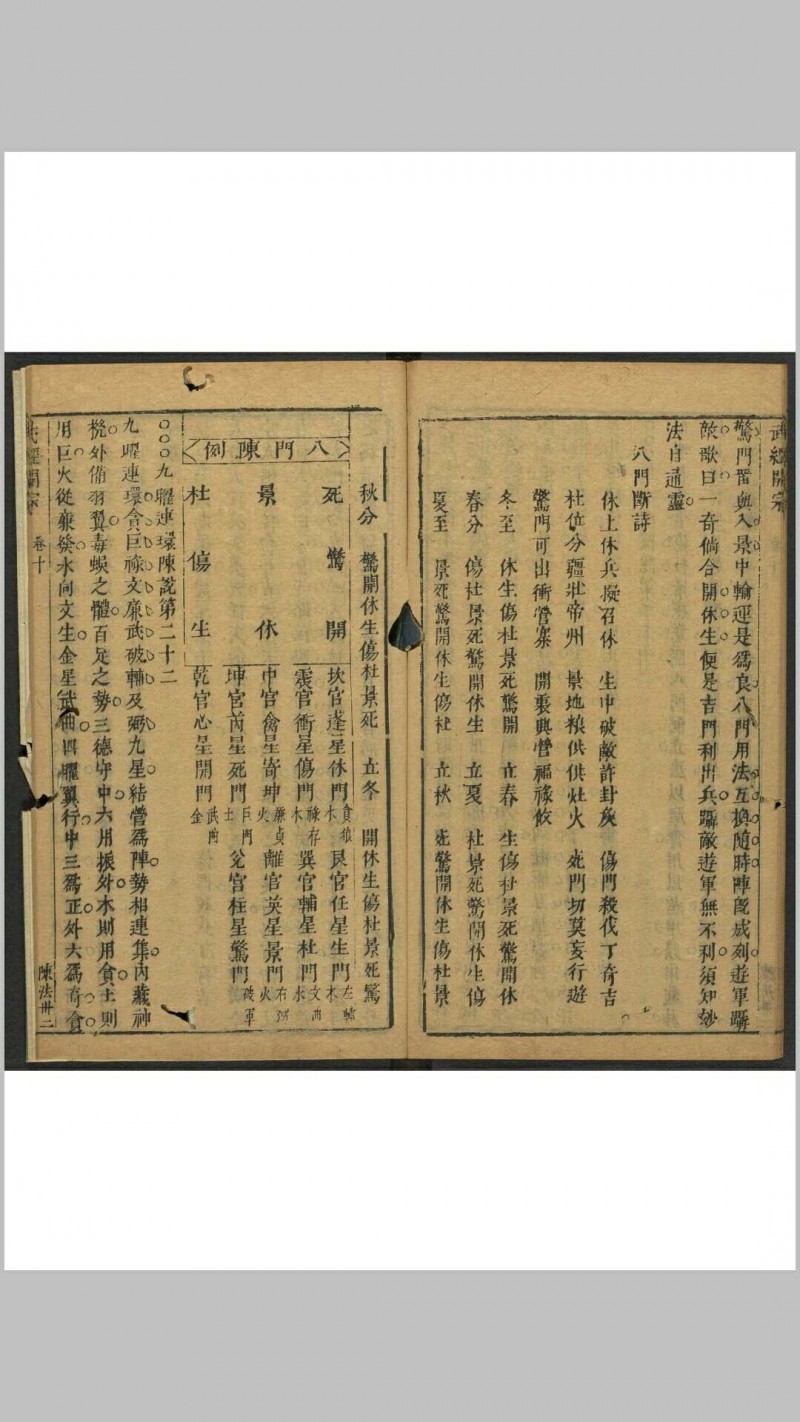 武經開宗
驚門畨與入景中輪運是爲良八門用法互換隨時陣旣成刻遊軍躡
敵歌曰一奇倘合開休生便是吉門利出兵躡敵遊軍無不利須知妙
法自通靈
八門斷詩
休上休兵擬召休 生中破敵許封矦 傷門殺伐丁奇吉
杜位分疆壯帝州 景地粮供供灶火 死門切莫妄行遊
驚門可出衝營寨 開裹興營福祿攸
冬至 休生傷杜景死驚開 立春 生傷杜景死驚開休
春分 傷杜景死驚開休生 立夏 杜景死驚開休生傷
夏至 景死驚開休生傷杜 立秋 死驚開休生傷杜景
秋分 驚開休生傷杜景死 立冬 開休生傷杜景死驚
八門陳例
死 驚 開
景 休
杜 傷 生
坎宮蓬星休門貪狼木 艮宮任星生門左輔木
震宮衝星傷門祿存木 巽宮輔星杜門文曲水
中宮禽星寄坤廉貞火 離宮英星景門右弼火
坤宮芮星死門巨門土 兌宮柱星驚門破軍
乾宮心星開門武曲金
〇〇〇九曜連環陳說第二十二
九曜連環貪巨祿文廉武破輔及弼九星結營爲陣勢相連集內藏神
機外備羽翼毒蜈之體百足之勢三德守中六用振外木則用貪土則
用巨火從廉發水向文生金星武曲四曜翼行中三爲正外六爲奇貪
武經開宗 卷十 陳法卅二